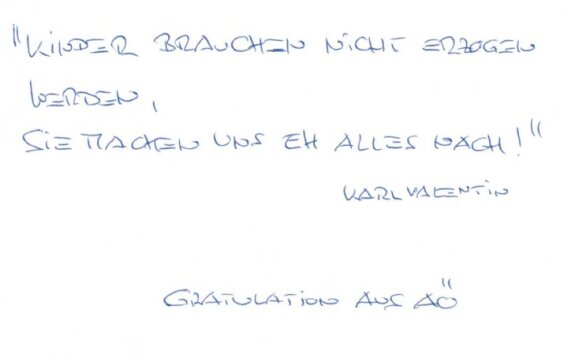 "KINDER BRAUCHEN NICHT ERZOGEN
WERDEN,
SIE MACHEN UNS EH ALLES NACH!"
KARL VALENTIN
GRATULATION AUS AÖ